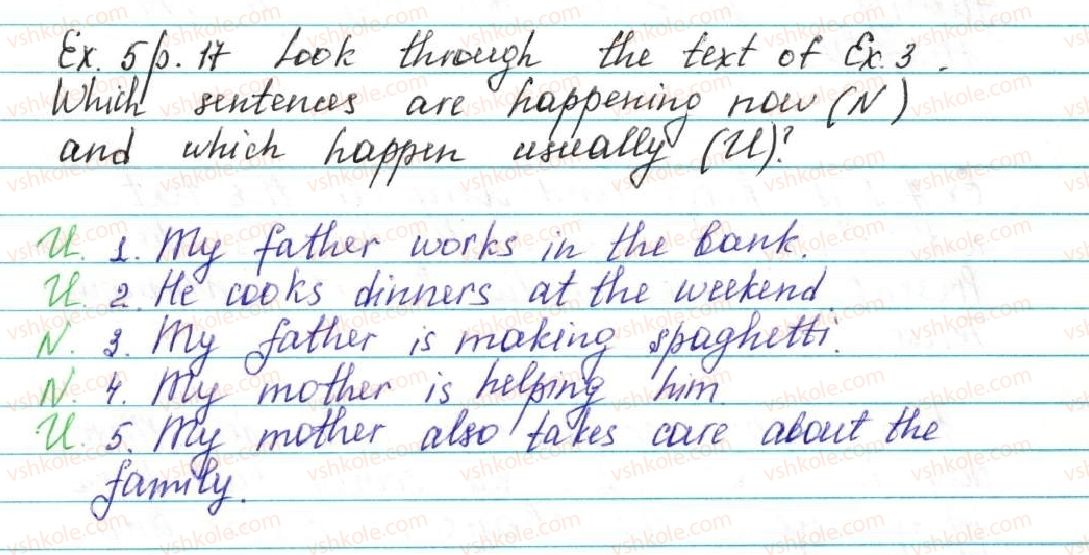 Ex. 5 p. 17 Look through the text of Ex. 3.
Which sentences are happening now (N)
and which happen usually (U)?
U. 1. My father works in the bank.
U. 2. He cooks dinners at the weekend.
N. 3. My father is making spaghetti.
N. 4. My mother is helping him
U. 5. My mother also takes care about the
family.